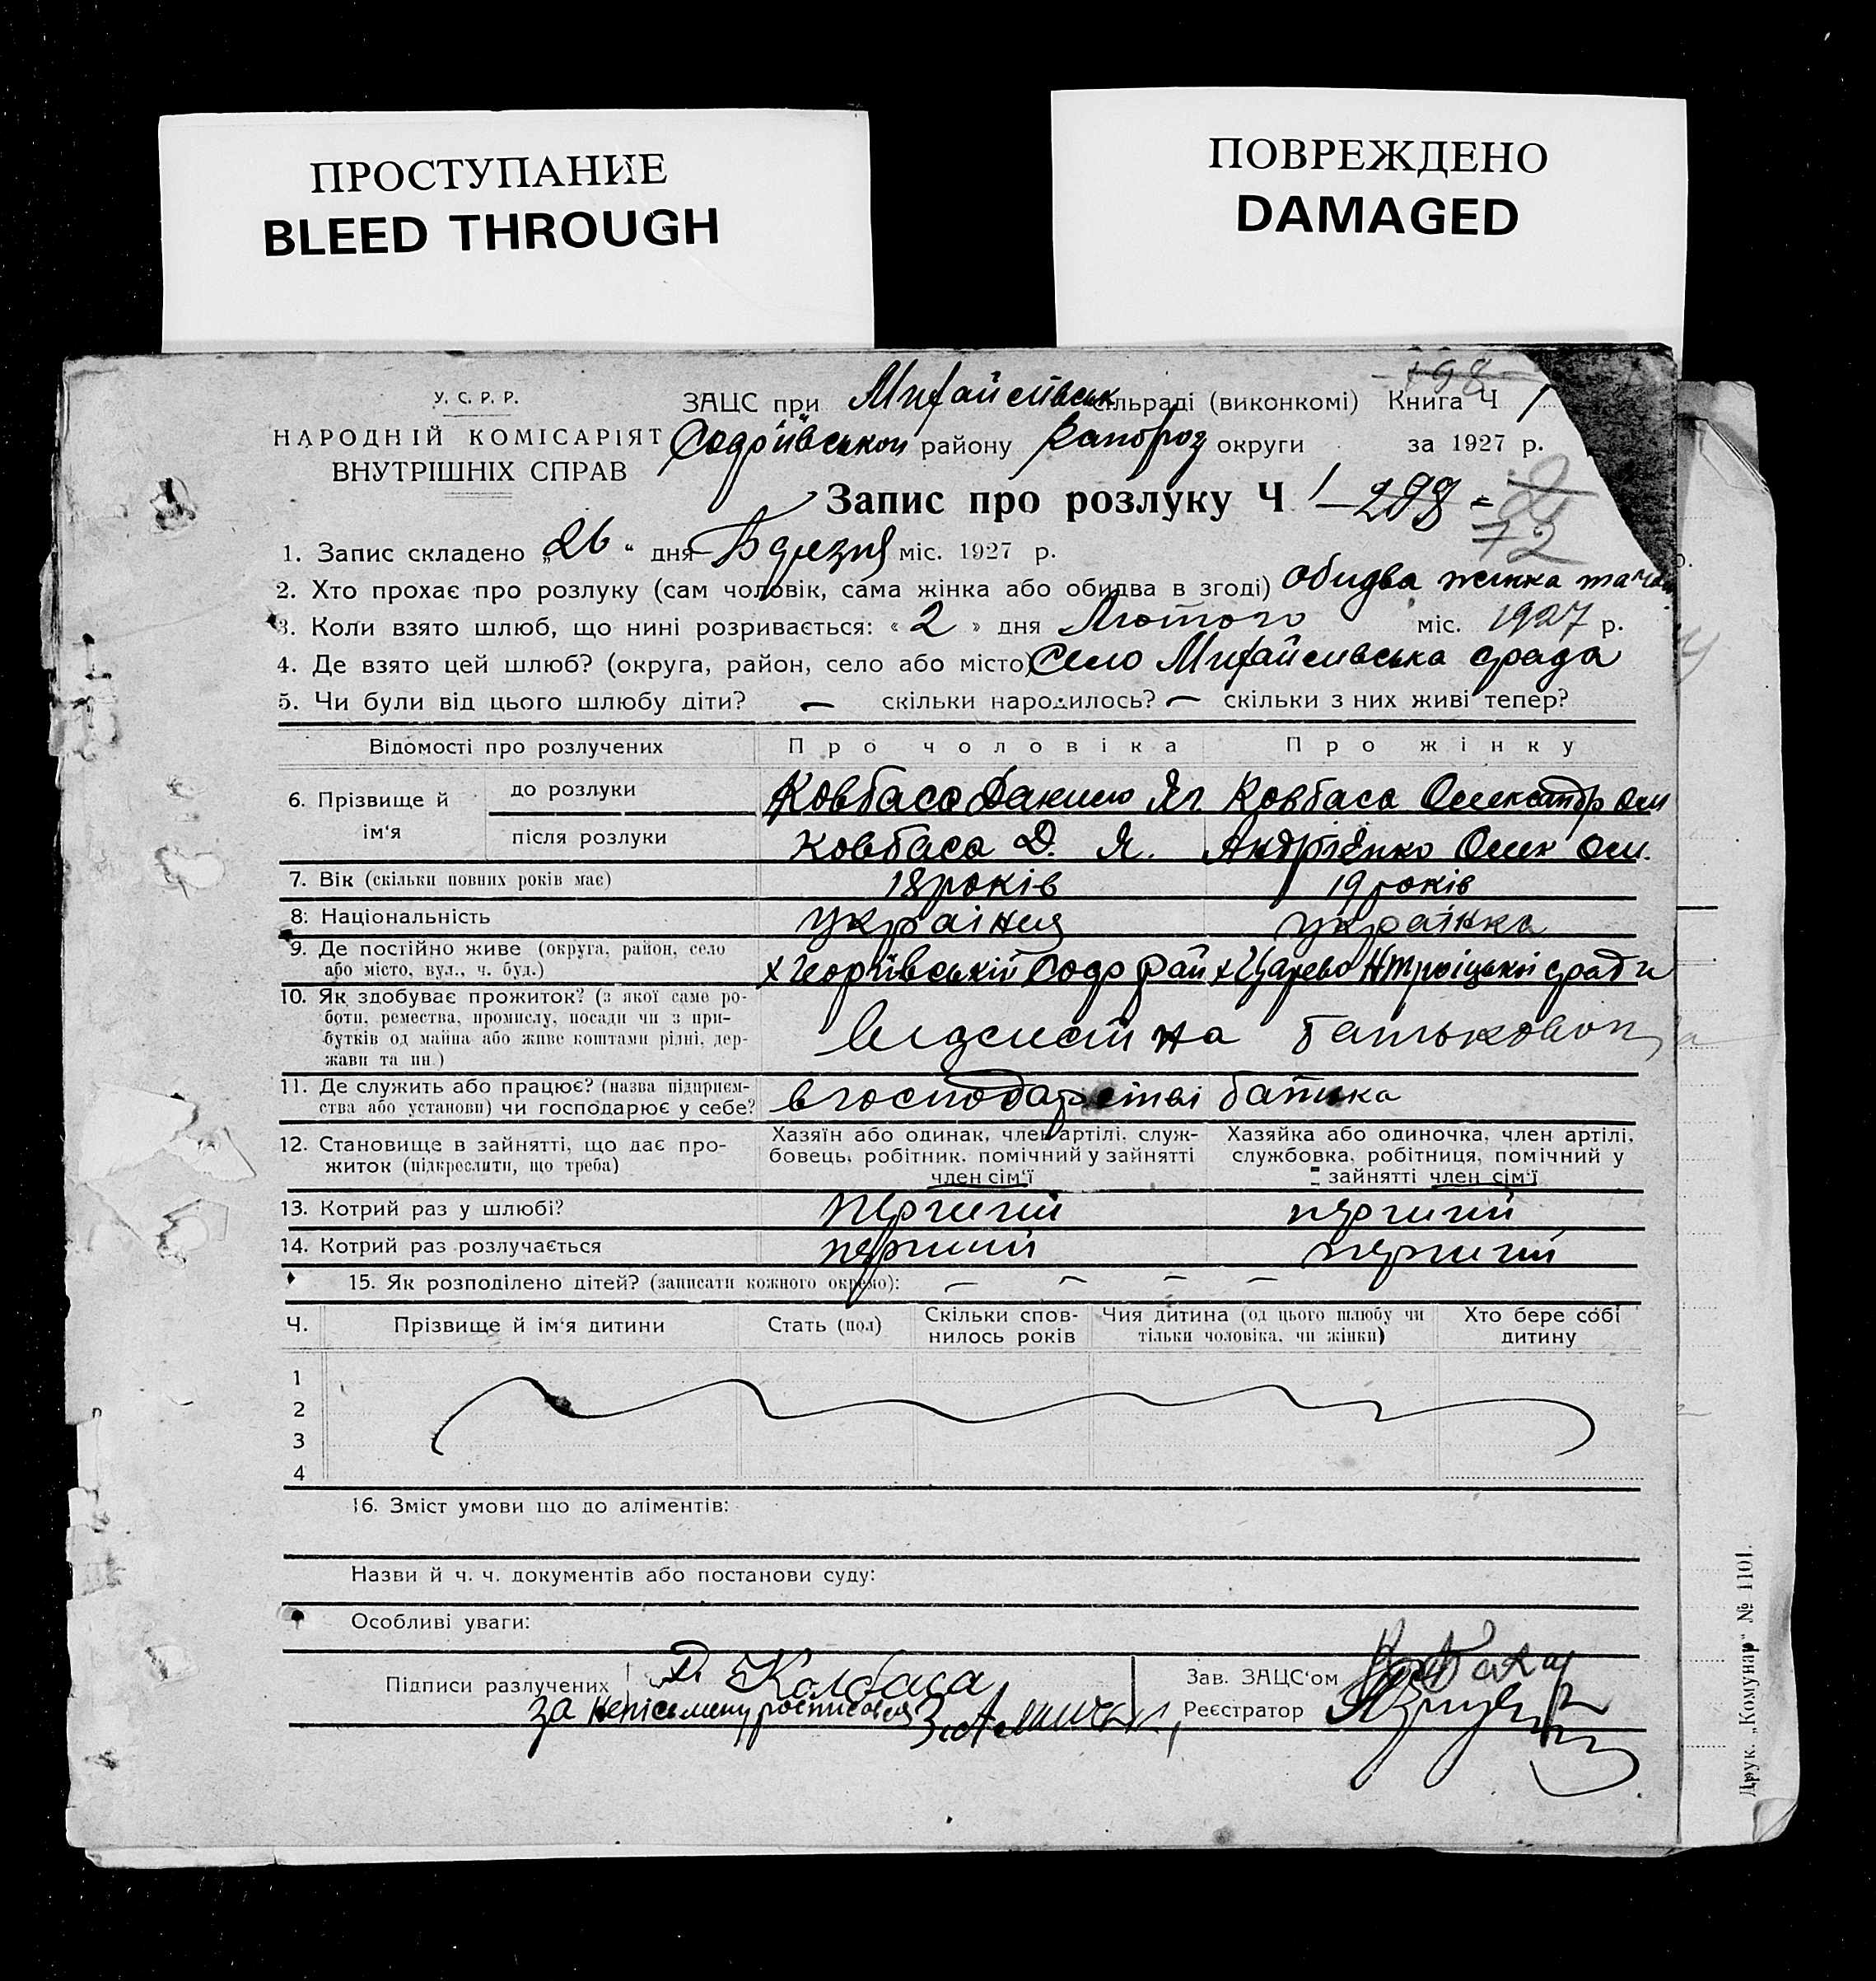 ПРОСТУПАНИЕ
BLEED THROUGH
ПОВРЕЖДЕНО
DAMAGED
У. С. Р. Р.
НАРОДНІЙ КОМІСАРІЯТ
ВНУТРІШНІХ СПРАВ
198
ЗАЦС при Михайлівськ сільраді (виконкомі) Книга Ч 1
району Запороз округи за 1927 р.
Запис про розлуку Ч 1
72
1. Запис складено „26“ дня Березня міс. 1927 р.
2. Хто прохає про розлуку (сам чоловік, сама жінка або обидва в згоді) обидва жінка та
3. Коли взято шлюб, що нині розривається: «2» дня Лютого міс. 1927 р.
4. Де взято цей шлюб? (округа, район, село або місто) Село Михайливська срада
5. Чи були від цього шлюбу діти? — скільки народилось? — скільки з них живі тепер?
Відомості про розлучених Про чоловіка Про жінку
6. Прізвище й ім‘я до розлуки Ковбаса Данило Як Ковбаса Олександр Ом
після розлуки Ковбаса Д. Я. Андрієнко Олек Ом.
7. Вік (скільки повних років має) 18 років 19 років
8: Національність українця українка
9. Де постійно живе (округа, район, село
або місто, вул., ч. буд.) х Георгіївській рай х Царево Нтроіцької сради
10. Як здобуває прожиток? (з якої саме ро-
боти, ремества, промислу, посади чи з при-
бутків од майна або живе коштами рідні, дер-
жави та ин.) на
11. Де служить або працює? (назва підприєм-
ства або установи) чи господарює у себе? в господарстві батька
12. Становище в зайнятті, що дає про-
житок (підкреслити, що треба)
Хазяїн або одинак, член артілі, служ-
бовець, робітник, помічний у зайнятті
член сім‘ї
Хазяйка або одиночка, член артілі,
службовка, робітниця, помічний у
зайнятті член сім‘ї
13. Котрий раз у шлюбі? перший перший
14. Котрий раз розлучається перший перший
15. Як розподілено дітей? (записати кожного окремо): — — — —
Ч. Прізвище й ім‘я дитини Стать (пол) Скільки спов-
нилось років Чия дитина (од цього шлюбу чи
тільки чоловіка, чи жінки) Хто бере собі
дитину
1
2
3
4
16. Зміст умови що до аліментів:
Назви й ч. ч. документів або постанови суду:
Особливі уваги:
Підписи разлучених Д Колбаса Зав. ЗАЦС‘ом
за неписьмену росписався Реєстратор
Друк. „Комунар“ № 1101.